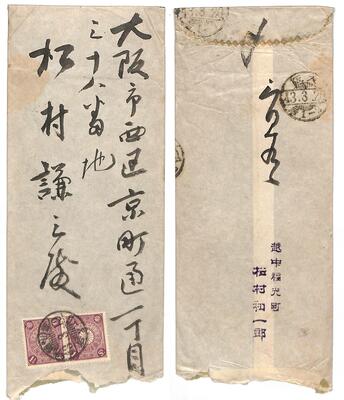 大阪市西区京町通一丁目
三十八番地
松村謙三殿
越中福光町
松村和一郎
13.3.